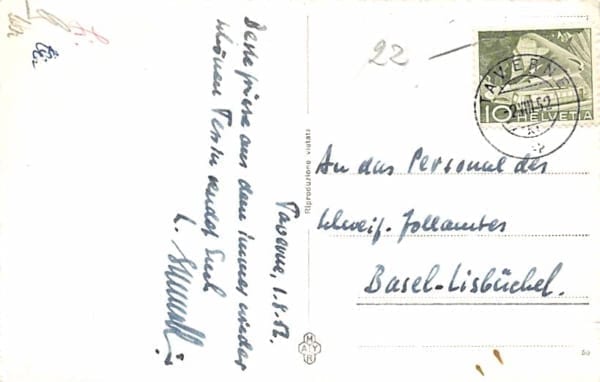 Taverne, 1.8.52.
Beste Grüsse aus dem immer wieder
schönen Tessin sendet Euch
22
TAVERNE
2.VIII.52
10 HELVETIA
An das Personal des
schweiz. Zollamtes
Basel-Lisbüchel.
Riproduzione vietata
MAYR
50